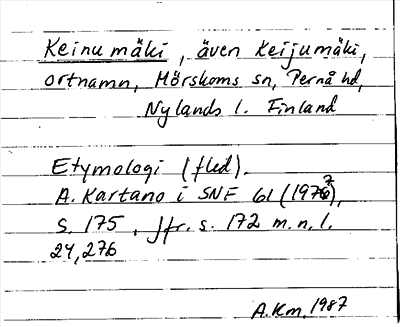 Keinumäki, även Keijumäki,
ortnamn, Mörskoms sn, Pernå hd,
Nylands l. Finland
Etymologi (fled).
A. Kartano i SNF 61 (1977),
s. 175, jfr. s. 172 m.n.l.
24,276
A.Km, 1987